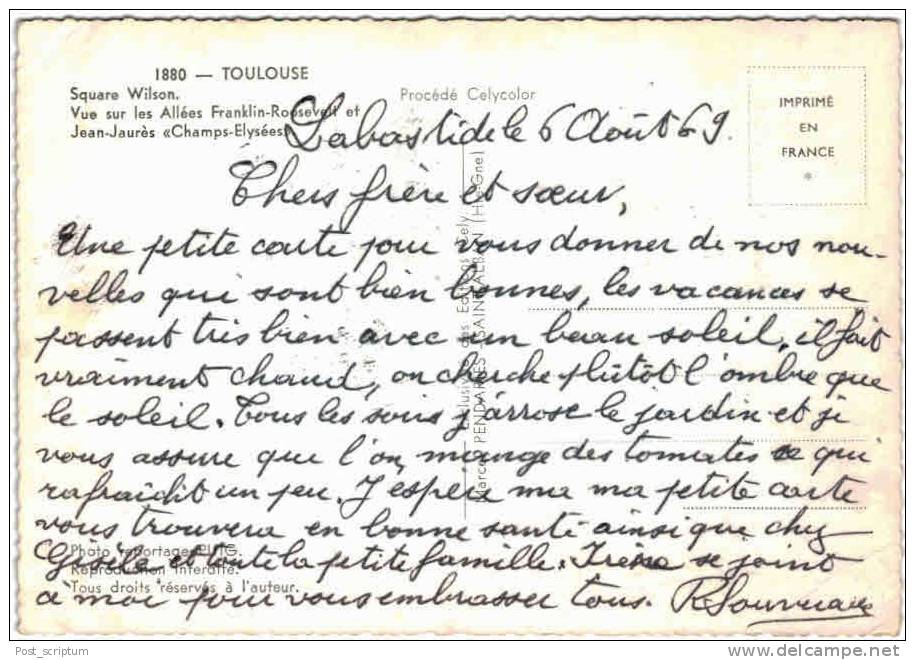 1880 — TOULOUSE
Square Wilson.
Vue sur les Allées Franklin-Roosevelt et
Jean-Jaurès «Champs-Elysées»
Procédé Celycolor
IMPRIMÉ
EN
FRANCE
*
Labastide le 6 Août 69.
Chers frère et sœur,
Une petite carte pour vous donner de nos nou-
velles qui sont bien bonnes, les vacances se
passent très bien avec un beau soleil, il fait
vraiment chaud, on cherche plûtôt l'ombre que
le soleil. Tous les soirs j'arrose le jardin et je
vous assure que l'on mange des tomates ce qui
rafraîdit un peu. J'espère ma petite carte
vous trouvera en bonne santé ainsi que chez
Gisèle et toute la petite famille. Irène se joint
à moi pour vous embrasser tous.
Exclusivité des Editions
Marcel PENDARIES SAINT-ALBAN (Hte-Gne)
Photo reportage
Reproduction interdite.
Tous droits réservés à l'auteur.
Post_scriptum
www.delcampe.net